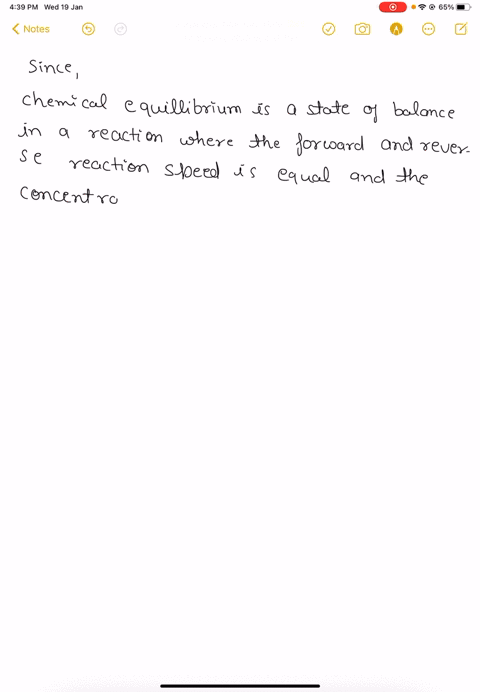 4:39 PM Wed 19 Jan 65%
Notes
Since,
Chemical equillibrium is a state of balance
in a reaction where the forward and rever-
se reaction speed is equal and the
concentra